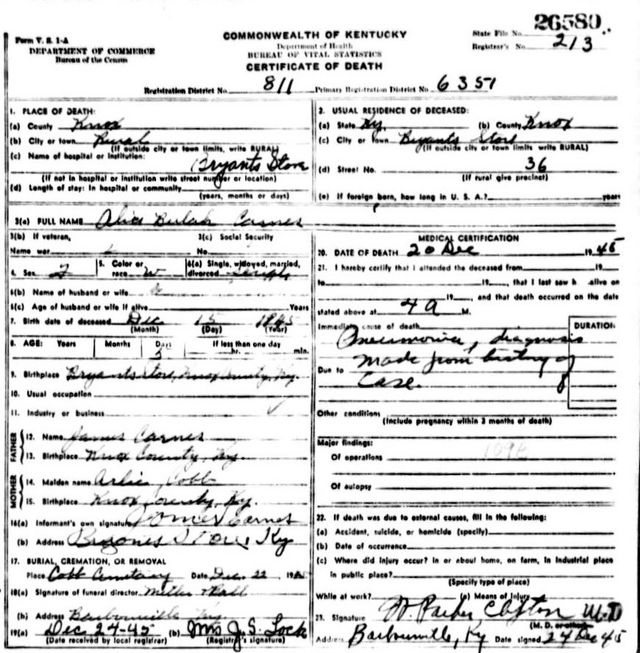 26580
Form V. S. 1-A
COMMONWEALTH OF KENTUCKY
State File No.
DEPARTMENT OF COMMERCE
Department of Health
Registrar's No. 213
Bureau of the Census
BUREAU OF VITAL STATISTICS
CERTIFICATE OF DEATH
Registration District No. 811 Primary Registration District No. 6351
1. PLACE OF DEATH:
(a) County Knox
(b) City or town Rural
(If outside city or town limits, write RURAL)
(c) Name of hospital or institution:
Bryants Store
(If not in hospital or institution write street number or location)
(d) Length of stay: In hospital or community
(years, months or days)
2. USUAL RESIDENCE OF DECEASED:
(a) State Ky. (b) County Knox
(c) City or town Bryants Store
(If outside city or town limits write RURAL)
(d) Street No. 36
(If rural give precinct)
(e) If foreign born, how long in U. S. A.? years
3(a) FULL NAME Beulah Carnes
3(b) If veteran,
3(c) Social Security
Name war
No.
4. Sex F
5. Color or race W
6(a) Single, widowed, married, divorced Single
6(b) Name of husband or wife
6(c) Age of husband or wife if alive Years
7. Birth date of deceased Dec 15
(Month) (Day) (Year)
8. AGE: Years Months Days If less than one day
5 hr. min.
9. Birthplace Bryants Store, Knox County, Ky.
10. Usual occupation
11. Industry or business
FATHER
12. Name James Carnes
13. Birthplace Knox County, Ky.
MOTHER
14. Maiden name Cobb
15. Birthplace Knox County, Ky.
16(a) Informant's own signature Carnes
(b) Address Store, Ky
17. BURIAL, CREMATION, OR REMOVAL
Place Cobb Cemetery Date Dec. 22 19
18(a) Signature of funeral director
(b) Address Barbourville Ky
19(a) Dec 24-45 (b) Mrs J. S. Lock
(Date received by local registrar) (Registrar's signature)
MEDICAL CERTIFICATION
20. DATE OF DEATH 20 Dec 1945
21. I hereby certify that I attended the deceased from
19
to 19 , that I last saw h alive on
19 , and that death occurred on the date
stated above at 4 a M.
Immediate cause of death
DURATION
Pneumonia, diagnosis
made from history of
Due to
Case.
Other conditions
(Include pregnancy within 3 months of death)
Major findings:
Of operations
Of autopsy
22. If death was due to external causes, fill in the following:
(a) Accident, suicide, or homicide (specify)
(b) Date of occurrence
(c) Where did injury occur? In or about home, on farm, in industrial place
in public place?
(Specify type of place)
While at work? (e) Means of injury
23. Signature W. Parker Clifton M.D
(M. D. or other)
Address Barbourville, Ky Date signed 24 Dec 45